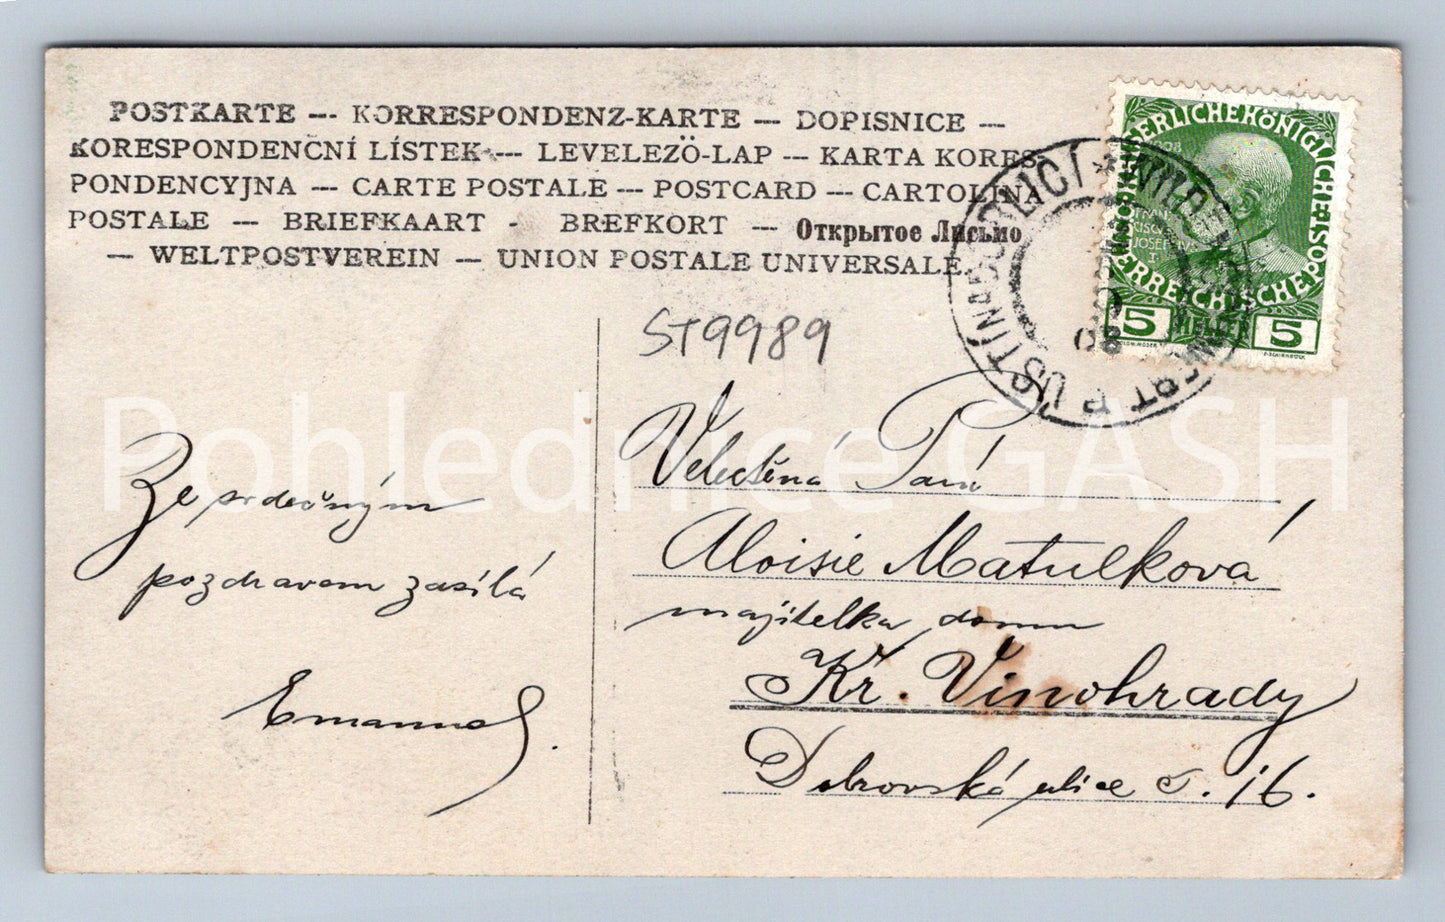 POSTKARTE -- KORRESPONDENZ-KARTE -- DOPISNICE --
KORESPONDENČNÍ LÍSTEK -- LEVELEZÖ-LAP -- KARTA KORES-
PONDENCYJNA -- CARTE POSTALE -- POSTCARD -- CARTOLINA
POSTALE -- BRIEFKAART - BREFKORT -- Открытое Письмо
— WELTPOSTVEREIN — UNION POSTALE UNIVERSALE.
KAISERLICHE KÖNIGLICHE
ÖSTERREICHISCHE POST
5 HELLER 5
ÚSTÍ NAD ORLICÍ * WILDEN
ST9989
Pohlednice GASH
Ze srdečným
pozdravem zasílá
Emanuel.
Velectěná Paní
Aloisie Matulková
majitelka domu
Kř. Vinohrady
Dobrovská ulice č. 16.